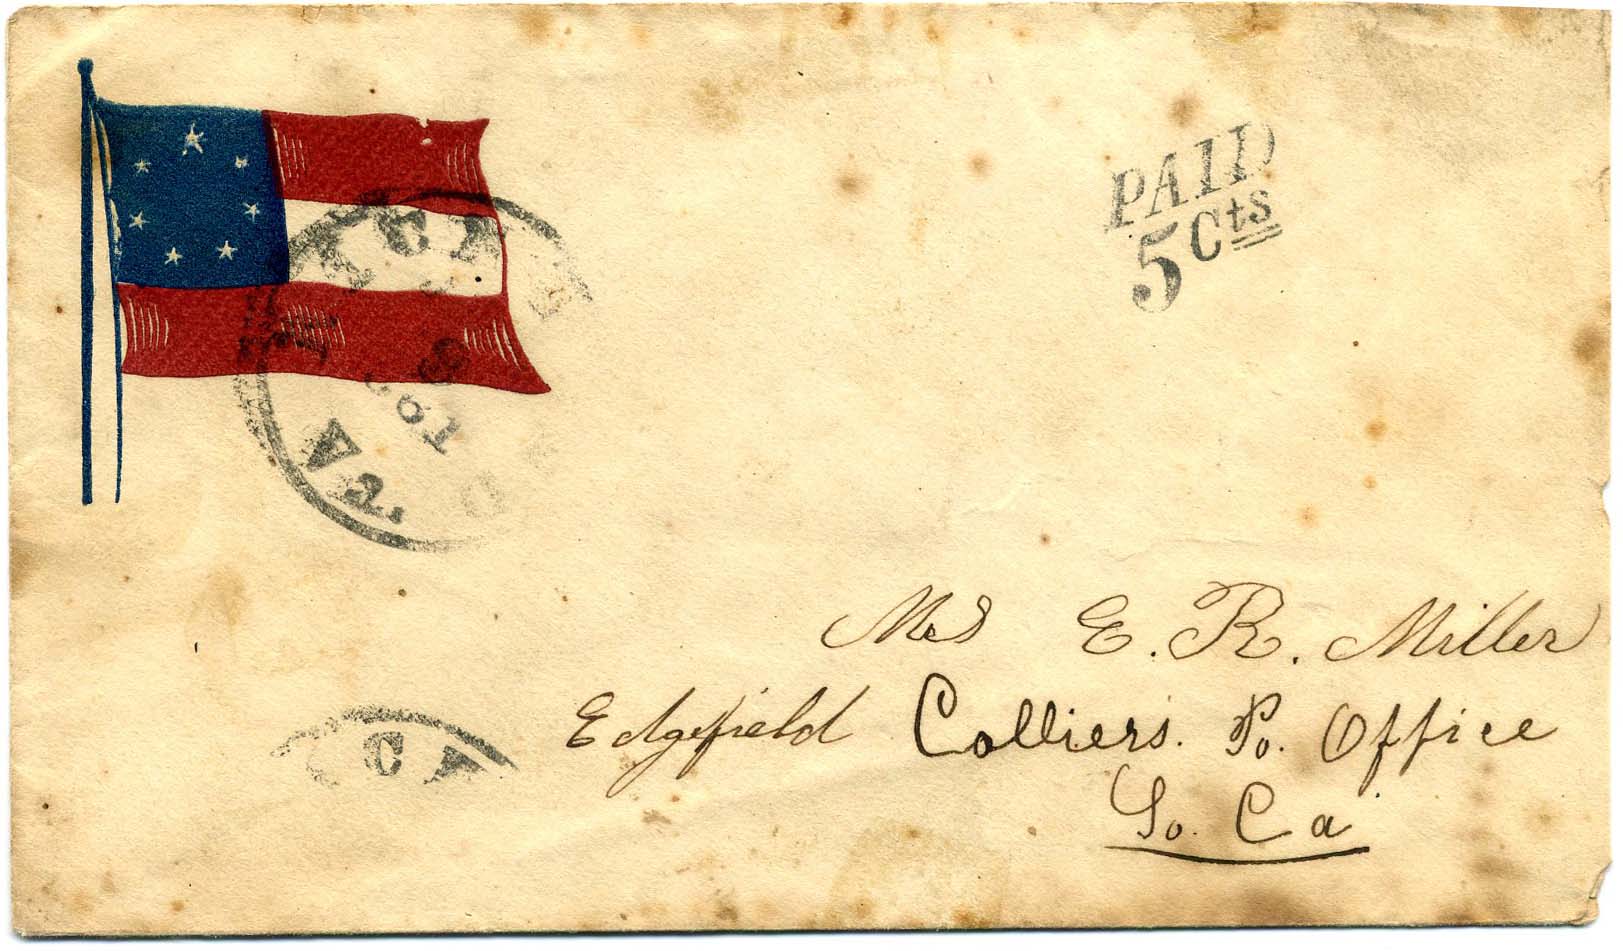 PAID
5 Cts
Mrs E. R. Miller
Edgefield Colliers. Po. Office
So. Ca